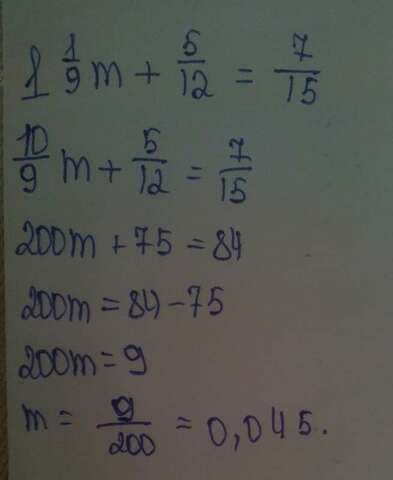 1 1/9 m + 5/12 = 7/15
10/9 m + 5/12 = 7/15
200m + 75 = 84
200m = 84 - 75
200m = 9
m = 9/200 = 0,045.